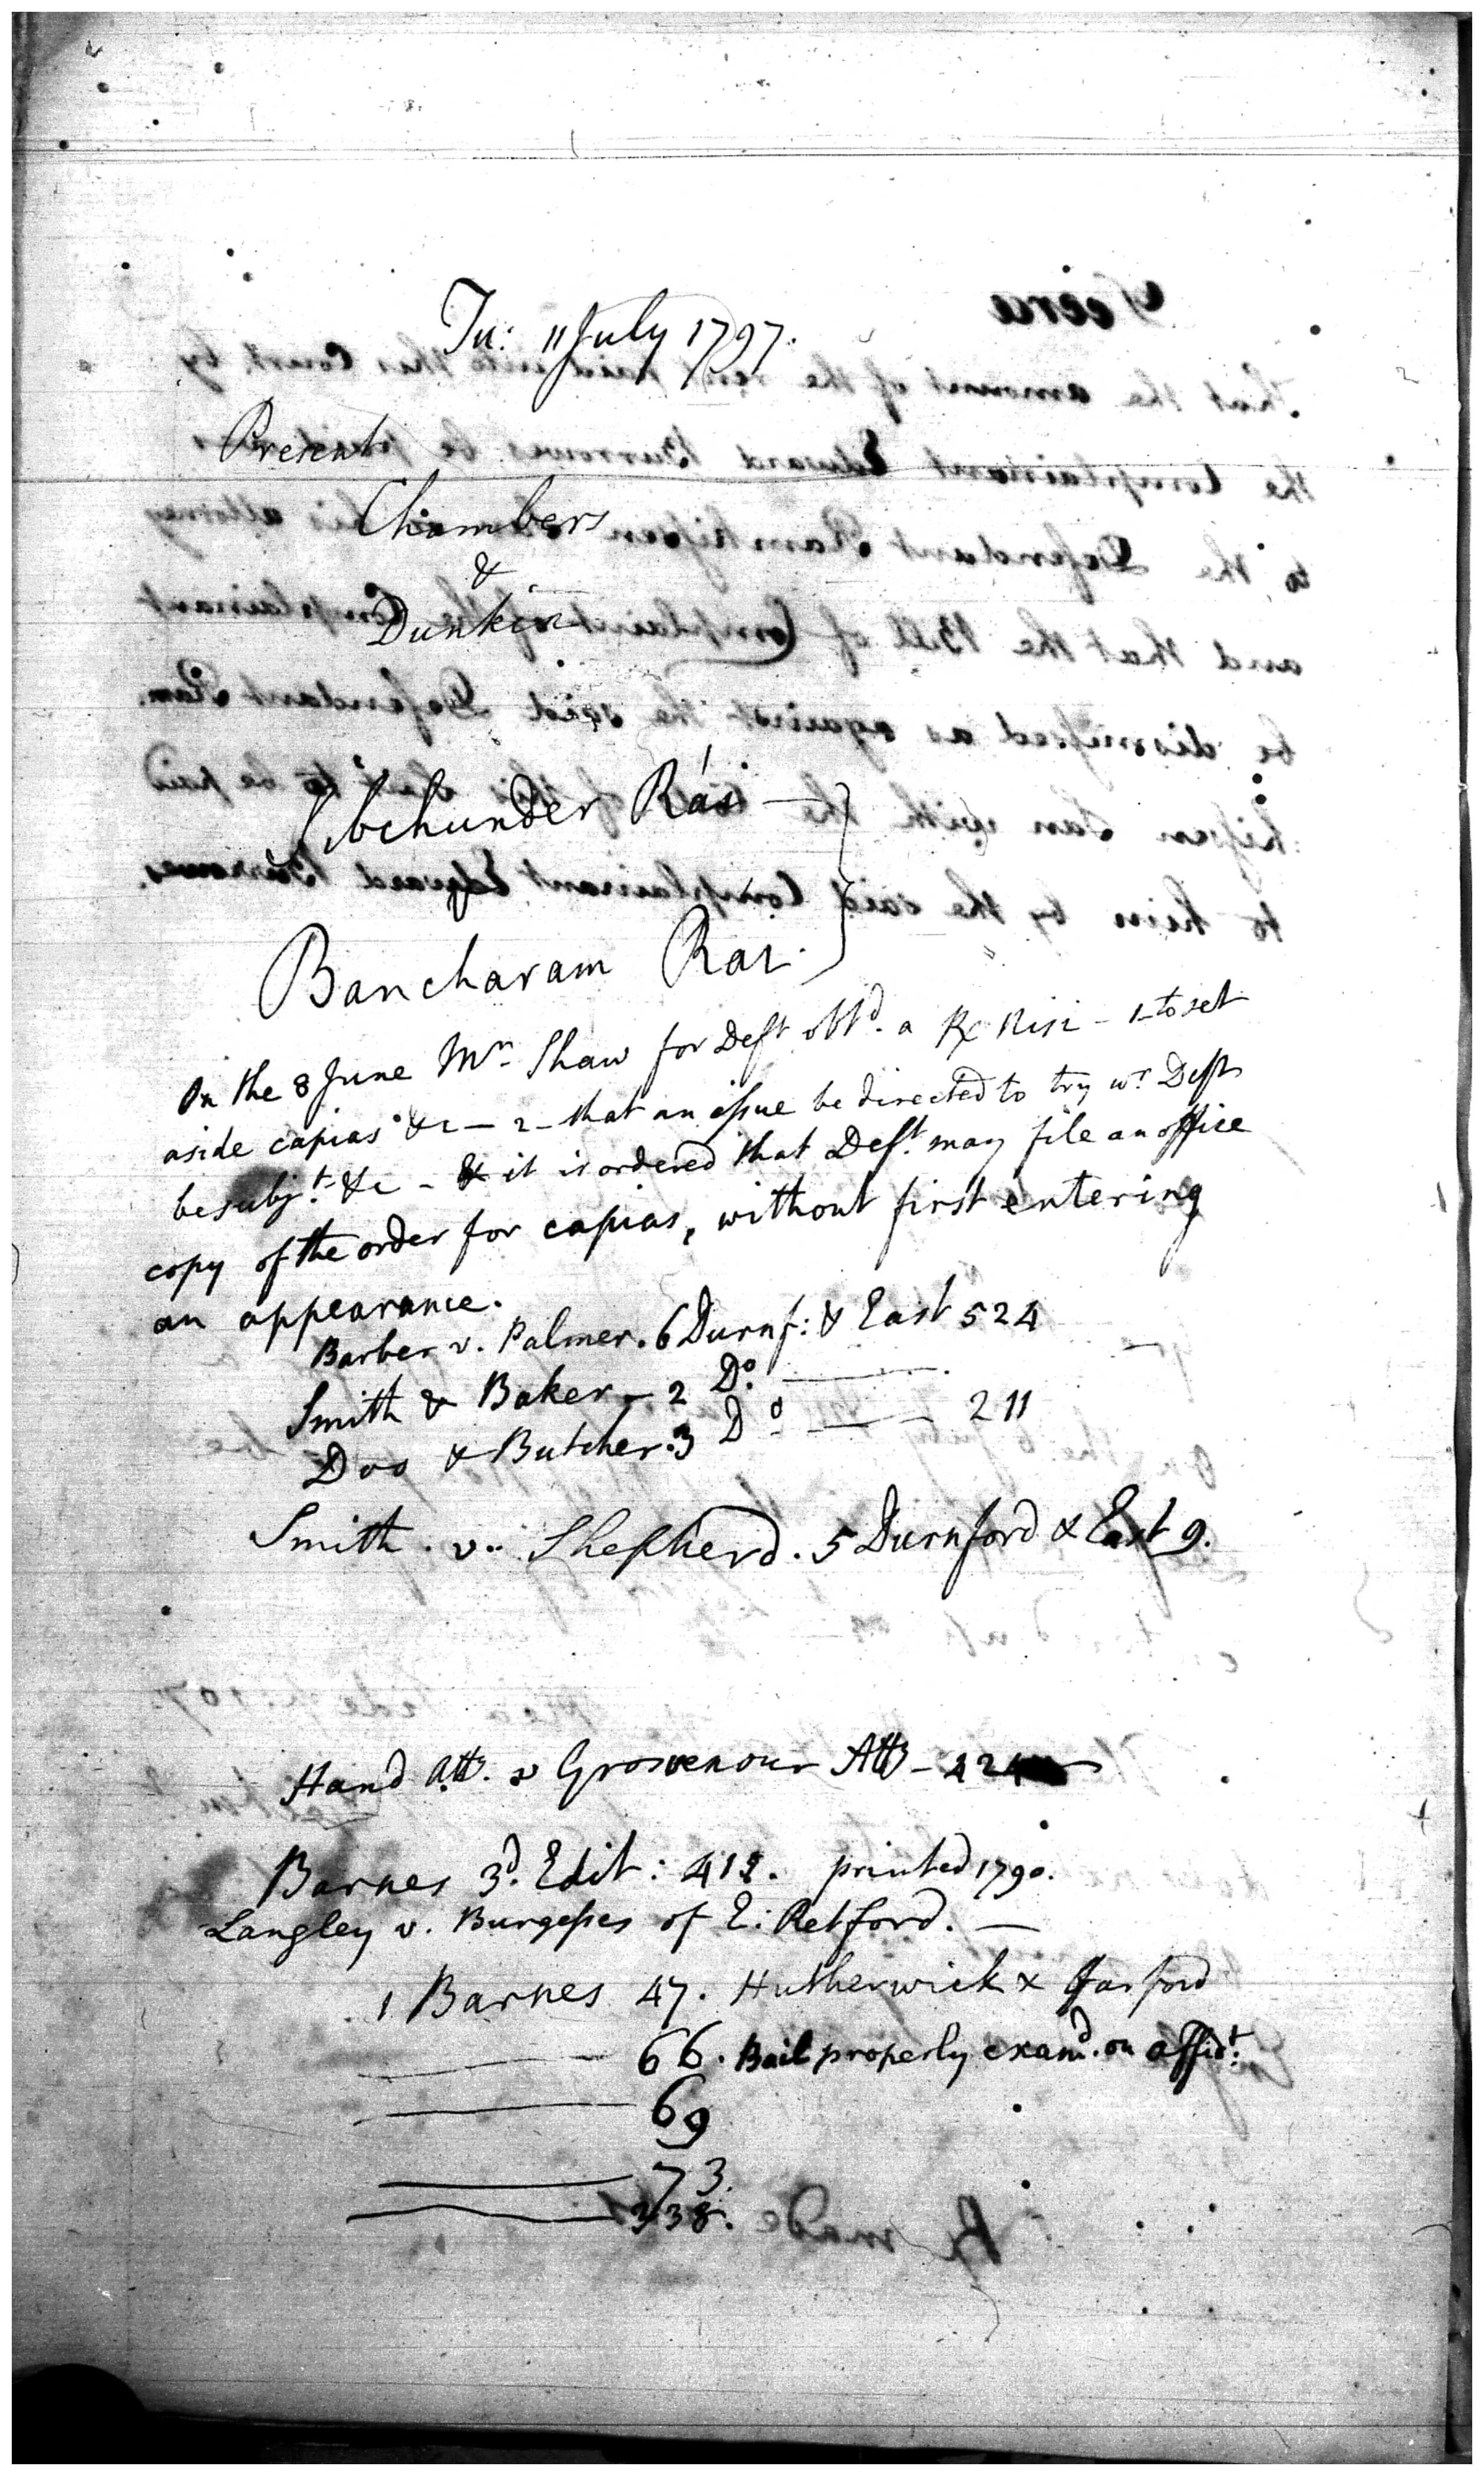 Tu: 11 July 1797.
Present
Chambers
&
Dunkin
Obchunder Rái
Bancharam Rai.
On the 8 June Mr. Shaw for Deft obtd. a Rx Nisi - 1 - to set
aside capias &c - 2 - that an issue be directed to try wr. Deft
be subjt. &c - & it is ordered that Deft. may file an office
copy of the order for capias, without first entering
an appearance.
Barber v. Palmer. 6 Durnf: & East 524
Smith & Baker - 2 Do.
Doo & Butcher. 3 Do - 211
Smith. v. Shepherd. 5 Durnford & East 9.
Hand Att. v Grosvenour Att -
Barnes 3d. Edit: 412. printed 1790.
Langley v. Burgesses of E: Retford. -
1 Barnes 47. Hutherwick &
66. Bail properly examd. on affidt:
69
73.
338.